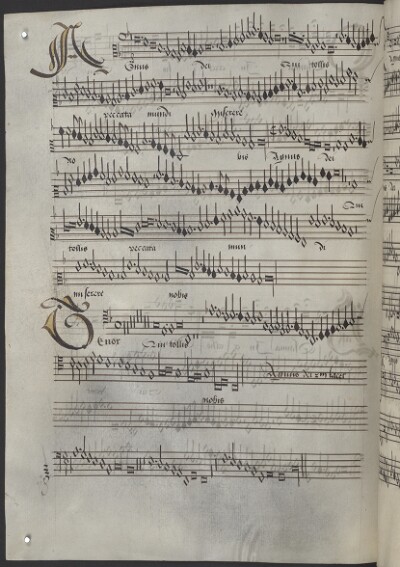 Agnus dei Qui tollis
peccata mundi miserere
no bis Agnus dei
Qui
tollis peccata mun di
miserere nobis
Tenor Qui tollis
Agnus dei
nobis